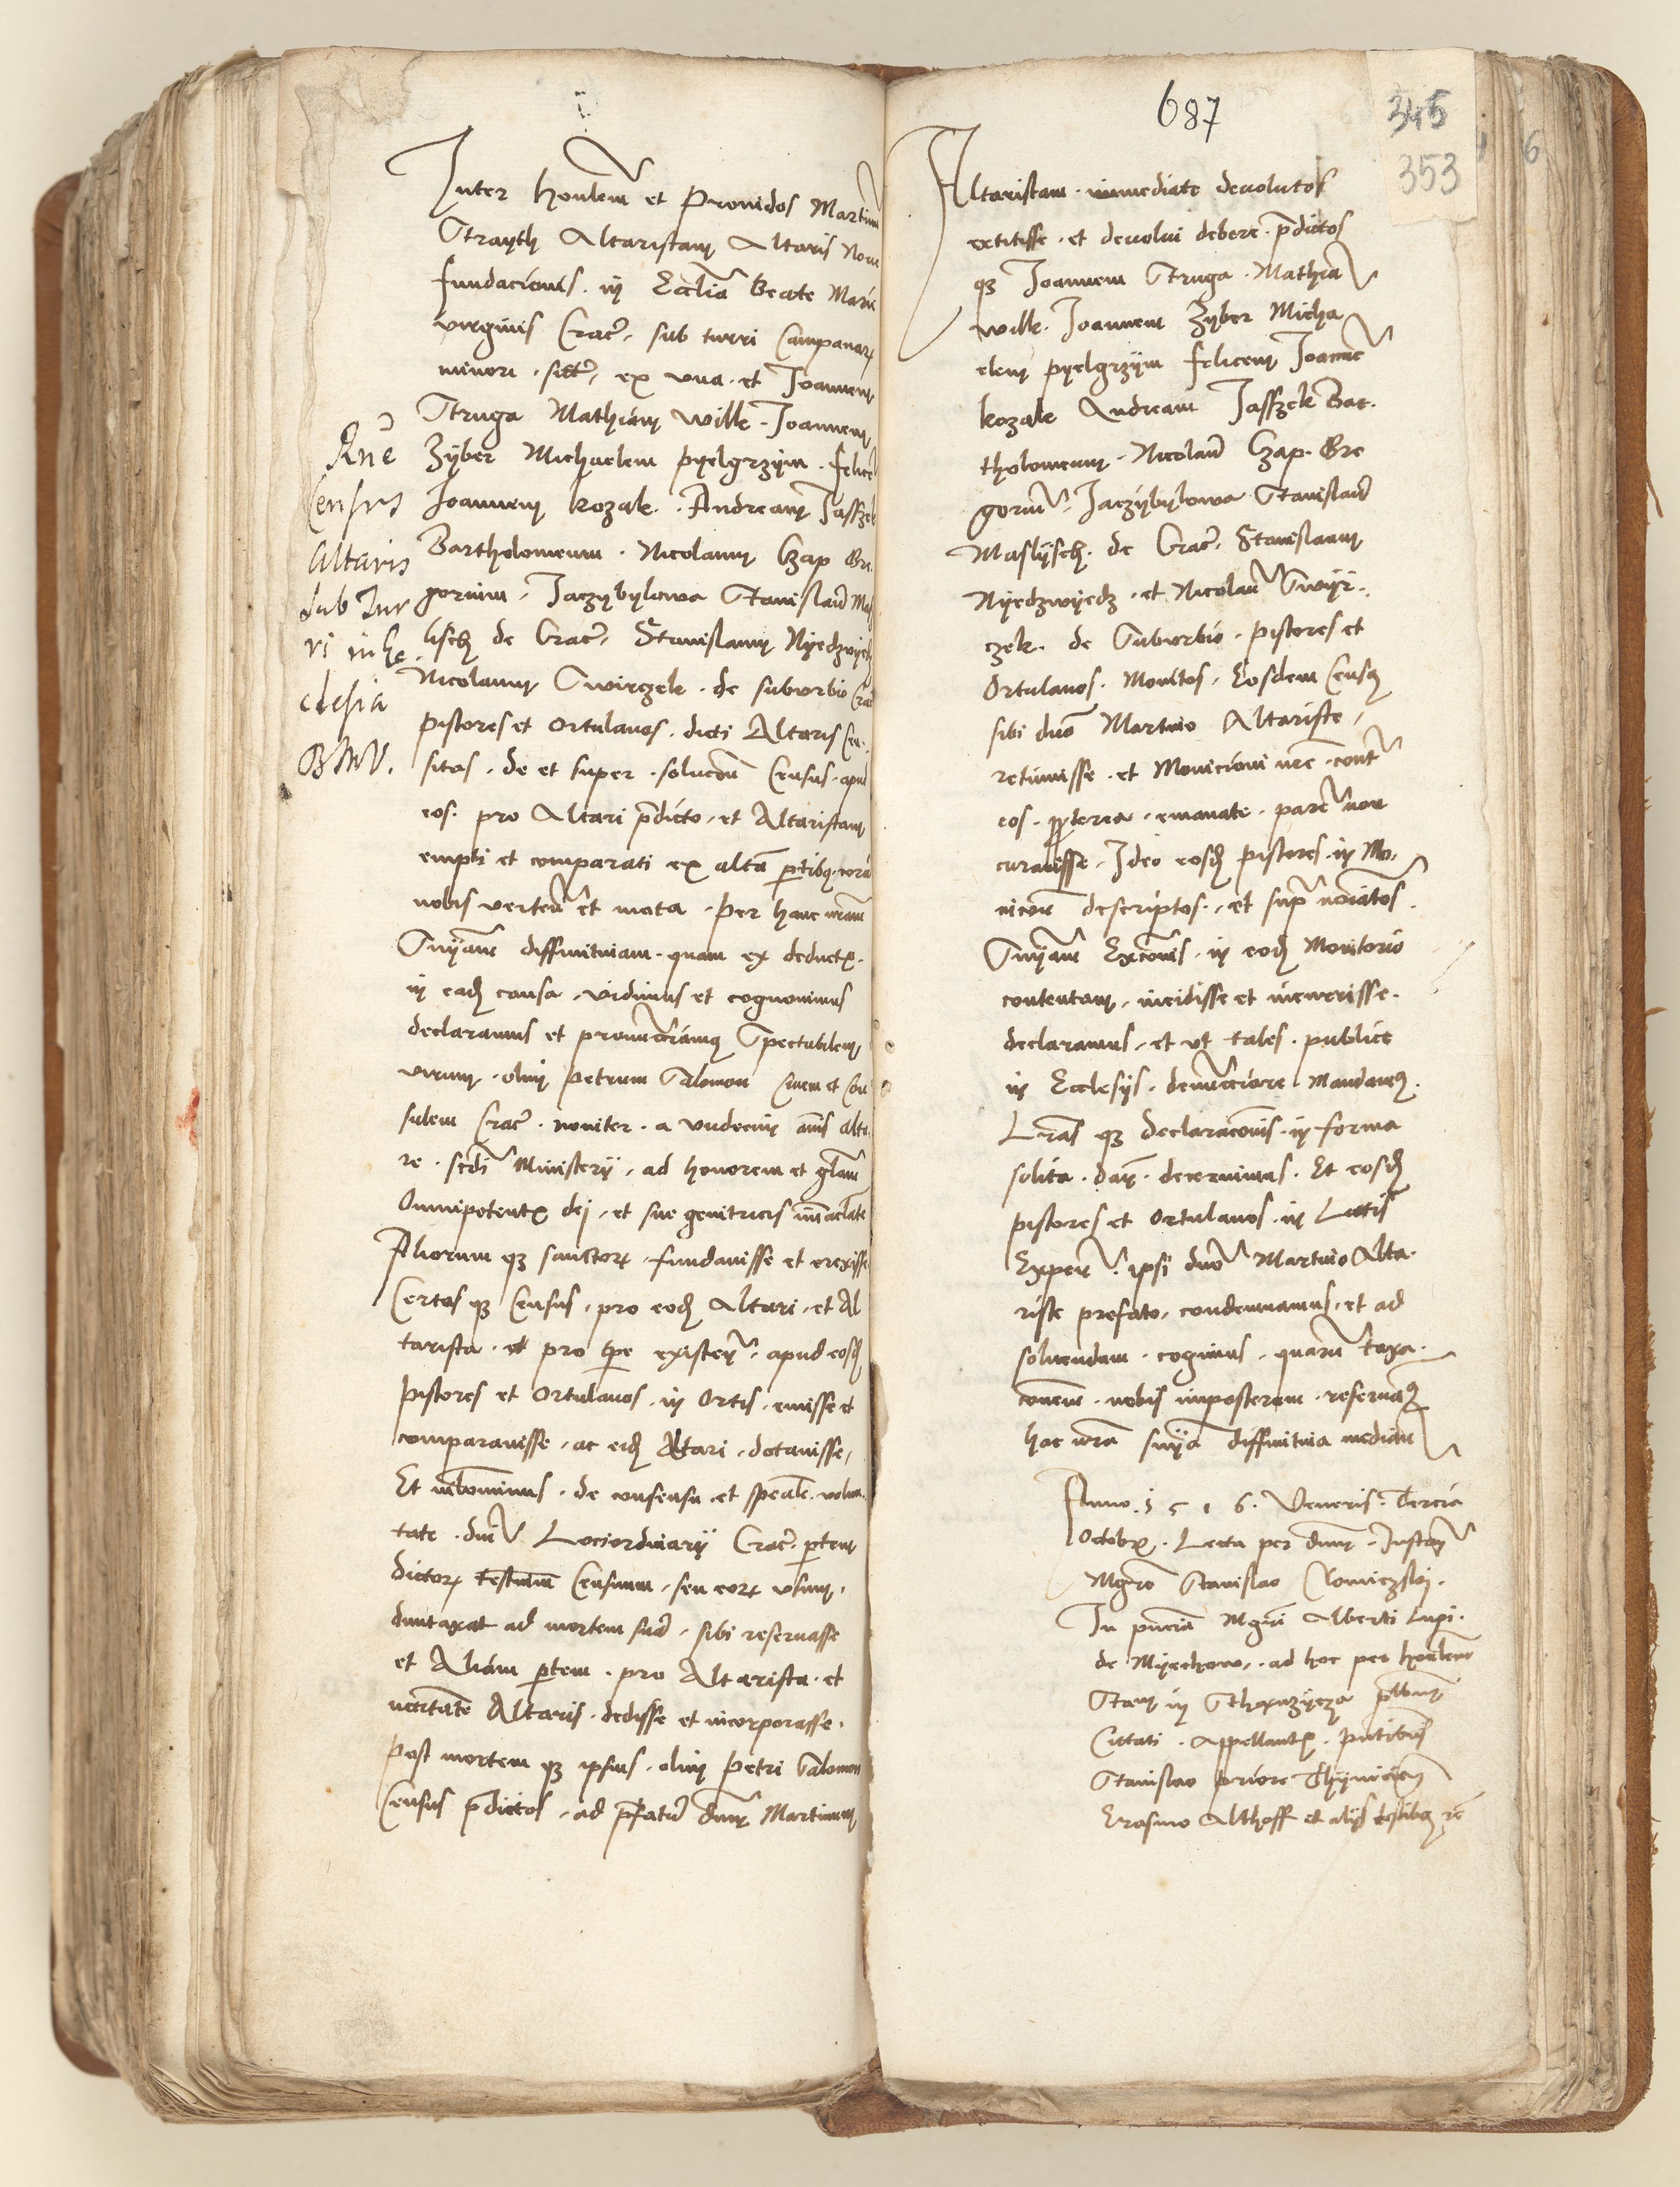 Inter honlem et Prouidos Martinu
Strayth Altaristam Altaris Noue
fundacionis . in Ecclia Beate Marie
virginis Crac . sub turri Campanar
minori . sitt , ex vna . et Joannem
Struga Mathiam Wilk . Joannem
Zyber Michaelem pyelgrzym . felice
Joannem kozak . Andream Jaffzek
Bartholomeum . Nicolaum Czap Gre
gorium , Jaczybylowa Stanislau Mas
lisch de Crac , Stanislaum Nyedzwyedz
Nicolaum Swirczek . de suburbio Crac
pistores et ortulanos . dicti Altaris Cen
sitos . de et super . solucone Census . apud
eos . pro Altari pdicto , et Altaristam
empti et comparati ex altera ptibq cora
nobis verten et mota . per hanc nram
Snyam diffinitiuam . quam ex deduct
in eade causa , vidimus et cognouimus
declaramus et pronuncciamq Spectabilem
virum . olim petrum Salomon Ciuem et Con
sulem Crac . nouiter . a vndecim annis Alta
re . scdi Ministerij , ad honorem et glam
Omnipotent dej , et sue genitricis immaclate
Aliorum qz sanctor , fundauisse et erexisse
Certos qz Census , pro eode Altari , et Al
tarista . pro tpe existen , apud eosd
pistores et Ortulanos . in Ortis , emisse et
comparauisse , ac eid Altari , dotauisse ,
Et nichominus . de consensu et speciale . volun
tate . dni Lociordinarij Crac . ptem
dictor Censuum , seu eor vsum ,
duntaxat ad mortem sua , sibi reseruasse
et Aliam ptem . pro Altarista . et
Altaris . dedisse et incorporasse .
post mortem qz ipsius . olim petri Salomon
Census pdictos , ad pfatu dnm Martinum
Rne
Census
Altaris
sub Tur
ri in Ec
clesia
BMV .
687
345
353
6
Altaristam . immediate deuolutos
extitisse . et deuolui debere . pdictos
qz Joannem Struga . Mathia
wilk . Joannem Zyber Micha
elem pyelgrzym felicem Joanne
kozak Andream Jaffzek Bar .
tholomeum . Nicolau Czap . Gre
goriu . Jaczybylowa Stanislau
Maslysch . de Crac , Stanislaum
Nyedzwyedz . et Nicolau Swyr .
czek . de Suburbio . pistores et
Ortulanos . Monitos , Eosdem Censq
sibi dno Martino Altariste ,
retinuisse . et Monicioni nre . cont
eos . ppterea . emanate . pare non
curauisse . Ideo eosd pistores . in Mo ,
nicone descriptos . , et sup noiatos .
Snyam Exconis . in eod Monitorio
contentam , incidisse et incurrisse .
declaramus , et vt tales . publice
in Ecclesijs . denuncciare Mandamq .
Lras qz declaraconis . in forma
solita . dari . decernimus . Et eosd
pistores et Ortulanos . in Lucis
Expen . ipsi dno Martino Alta .
riste prefato , condemnamus . et ad
soluendam . cogimus . quaru taxa .
conem . nobis imposterum . reseruaq
hac nra snya diffinitiua median
Anno . 1 5 1 6 . Veneris . Tercia
Octobr . Lecta per dnm . Instan
Mgro Stanislao Clomiczskj .
In pncia Mgri Alberti Lupi .
de Myechow , . ad hoc per honlem
Stan in plbnum
Cittati . Appellant . pntibus
Stanislao priore Thynicien
Erasmo Althoff et alijs testibq rc